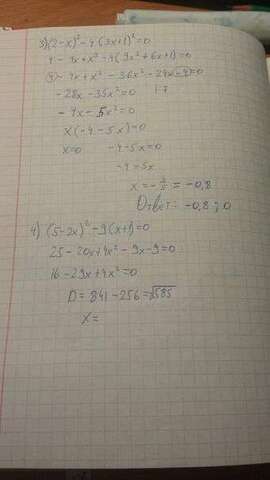 3) (2-x)² - 4 (3x+1)² = 0
4 - 4x + x² - 4 (9x² + 6x + 1) = 0
4 - 4x + x² - 36x² - 24x - 4 = 0
-28x - 35x² = 0 |-7
- 4x - 5x² = 0
x(-4-5x) = 0
x=0 -4-5x=0
-4=5x
x = -4/5 = -0,8
Ответ: -0,8 ; 0
4) (5-2x)² - 9(x+1) = 0
25 - 20x + 4x² - 9x - 9 = 0
16 - 29x + 4x² = 0
D = 841 - 256 = √585
X =